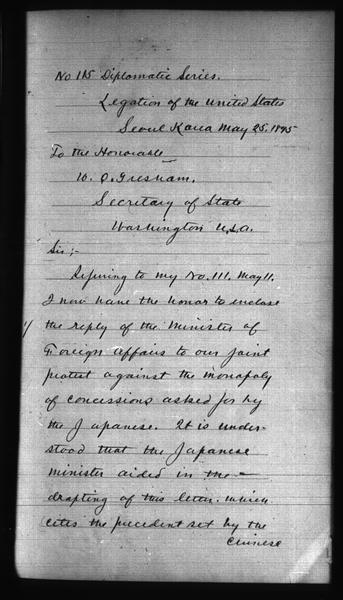 No 115 Diplomatic Series.
Legation of the United States
Seoul Korea May 25, 1895
To the Honorable
W. Q. Gresham,
Secretary of State
Washington U.S.A.
Sir;-
Refering to my No. 111. May 11.
I now have the honor to enclose
1/ the reply of the Minister of
Foreign affairs to our joint
protest against the monopoly
of concessions asked for by
the Japanese. It is under-
stood that the Japanese
minister aided in the
drafting of this letter. which
cites the precedent set by the
Chinese